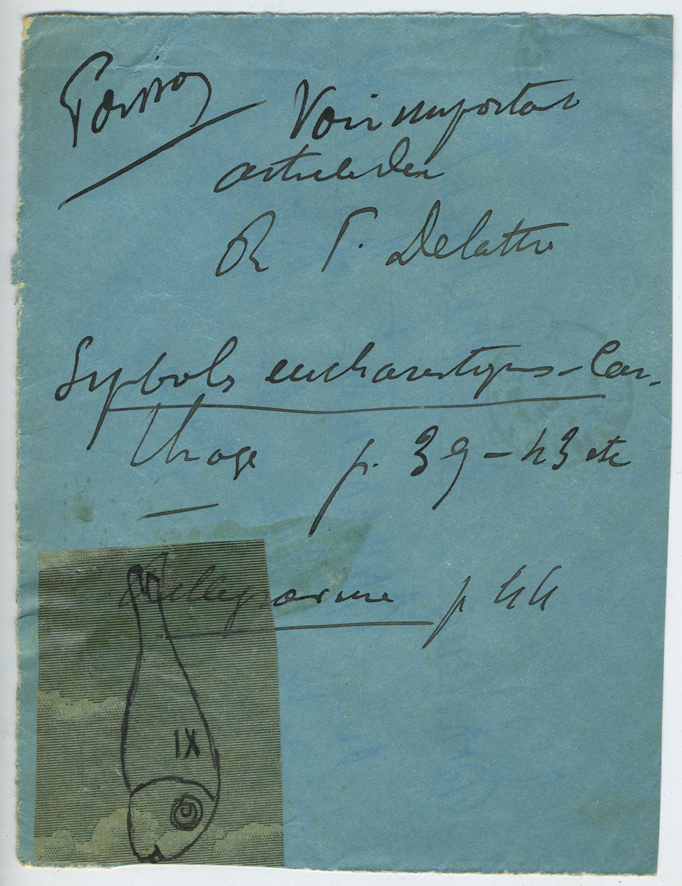 Poisson
Voir important
article du
R P. Delattre
Symbols eucharistiques - Car-
thage p. 39-43 etc
p 44
IX